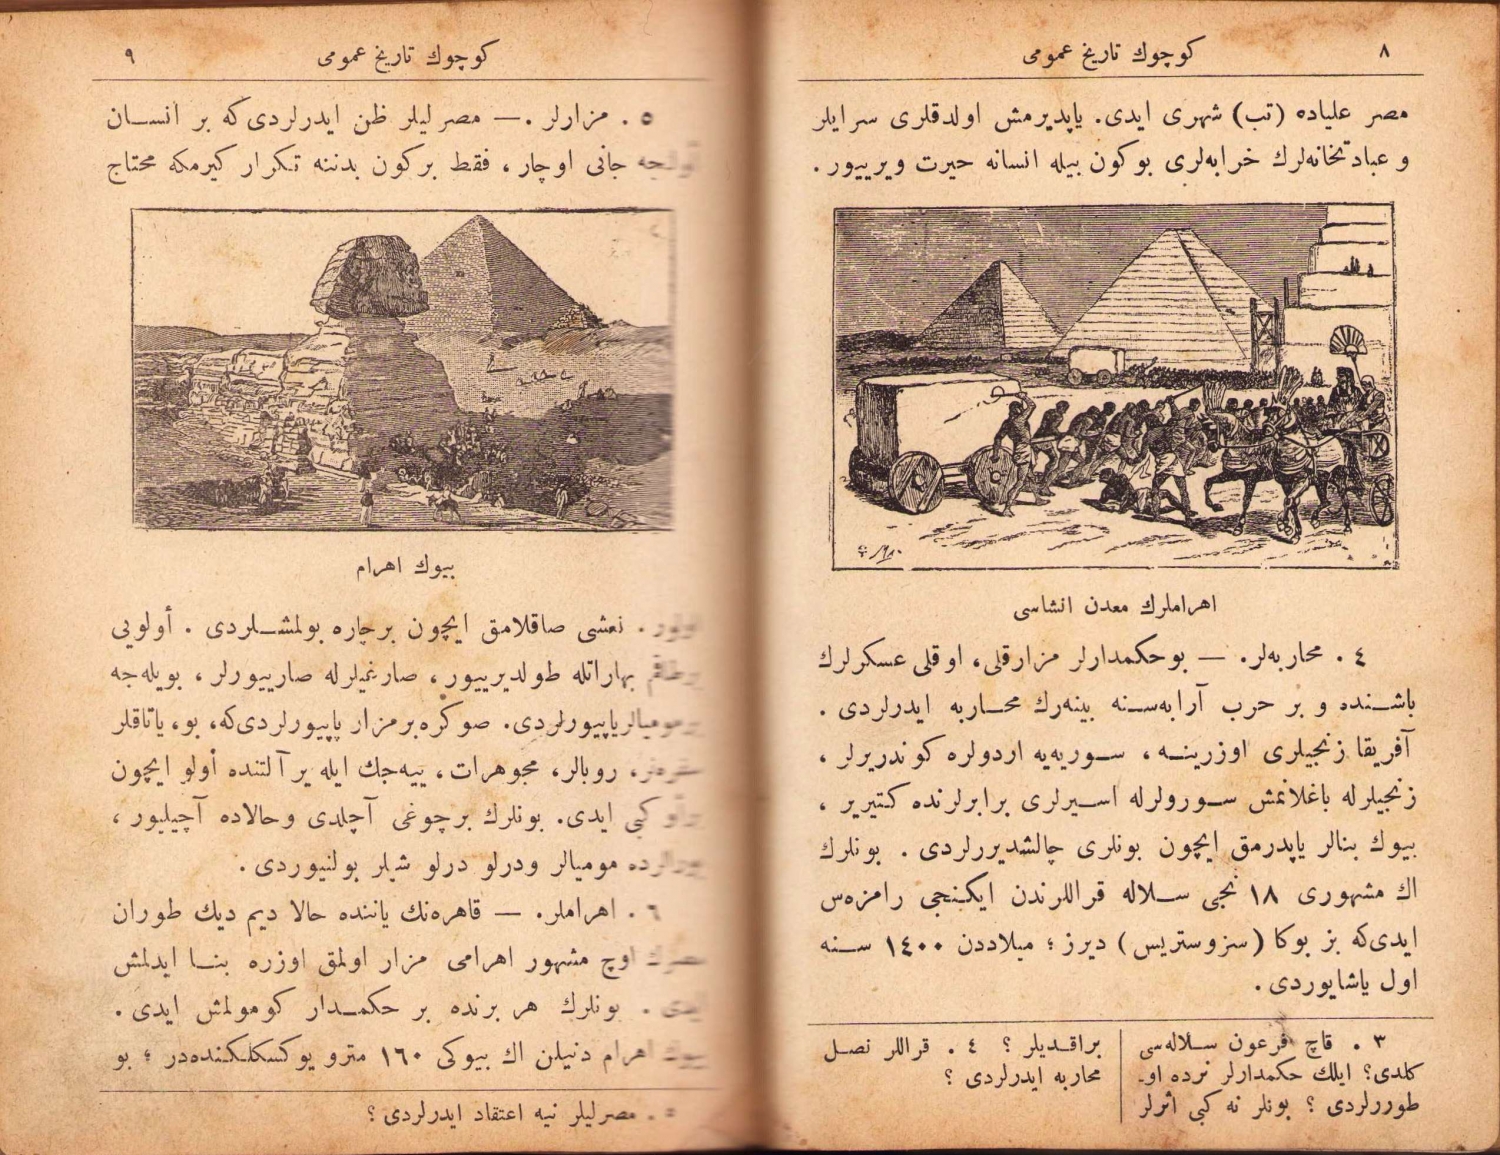 ٨
كوچوك تاريخ عمومى
مصر علياده (تب) شهرى ايدى. ياپديرمش اولدقلرى سرايلر
و عبادتخانه‌لرك خرابه‌لرى بوكون بيله انسانه حيرت ويرييور.
اهراملرك معدن انشاسى
٤ . محاربه‌لر. — بو حكمدارلر مزارقلى، اوقلى عسكرلرك
باشنده و بر حرب آرابه‌سنه بينه‌رك محاربه ايدرلردى .
آفريقا زنجيلرى اوزرينه ، سوريه‌يه اردولره كوندريرلر ،
زنجيلرله باغلانمش سورولرله اسيرلرى برابرلرنده كتيرير ،
بيوك بنالر ياپدرمق ايچون بونلرى چالشديررلردى . بونلرك
اك مشهورى ١٨ نجى سلاله قراللرندن ايكنجى رامزه‌س
ايدى‌كه بز بوكا (سزوستريس) ديرز ؛ ميلاددن ١٤٠٠ سنه
اول ياشايوردى .
٣ . قاچ فرعون سلاله‌سى
كلدى؟ ايلك حكمدارلر نرده او-
طوررلردى ؟ بونلر نه كبى اثرلر
براقديلر ؟ ٤ . قراللر نصل
محاربه ايدرلردى ؟
كوچوك تاريخ عمومى
٩
٥ . مزارلر .— مصرليلر ظن ايدرلردى‌كه بر انسان
جانى اوچار ، فقط بركون بدننه تكرار كيرمكه محتاج
بيوك اهرام
اولور . نعشى صاقلامق ايچون برچاره بولمشلردى . أولويى
برطاقم بهاراتله طولديرييور ، صارغيلرله صارييورلر ، بويله‌جه
موميالر ياپيورلردى. صوكره بر مزار ياپيورلردى‌كه، بو، ياتاقلر
روبالر، مجوهرات ، ييه‌جك ايله ير آلتنده أولو ايچون
كبى ايدى. بونلرك برچوغى آچلدى وحالاده آچيليور ،
موميالر ودرلو درلو شيلر بولنيوردى .
٦ . اهراملر. — قاهره‌نك ياننده حالا ديم ديك طوران
مصرك اوچ مشهور اهرامى مزار اولمق اوزره بنا ايدلمش
ايدى . بونلرك هر برنده بر حكمدار كومولمش ايدى .
بيوك اهرام دنيلن اك بيوكى ١٦٠ مترو يوكسكلكنده‌در ؛ بو
٥ . مصرليلر نيه اعتقاد ايدرلردى ؟